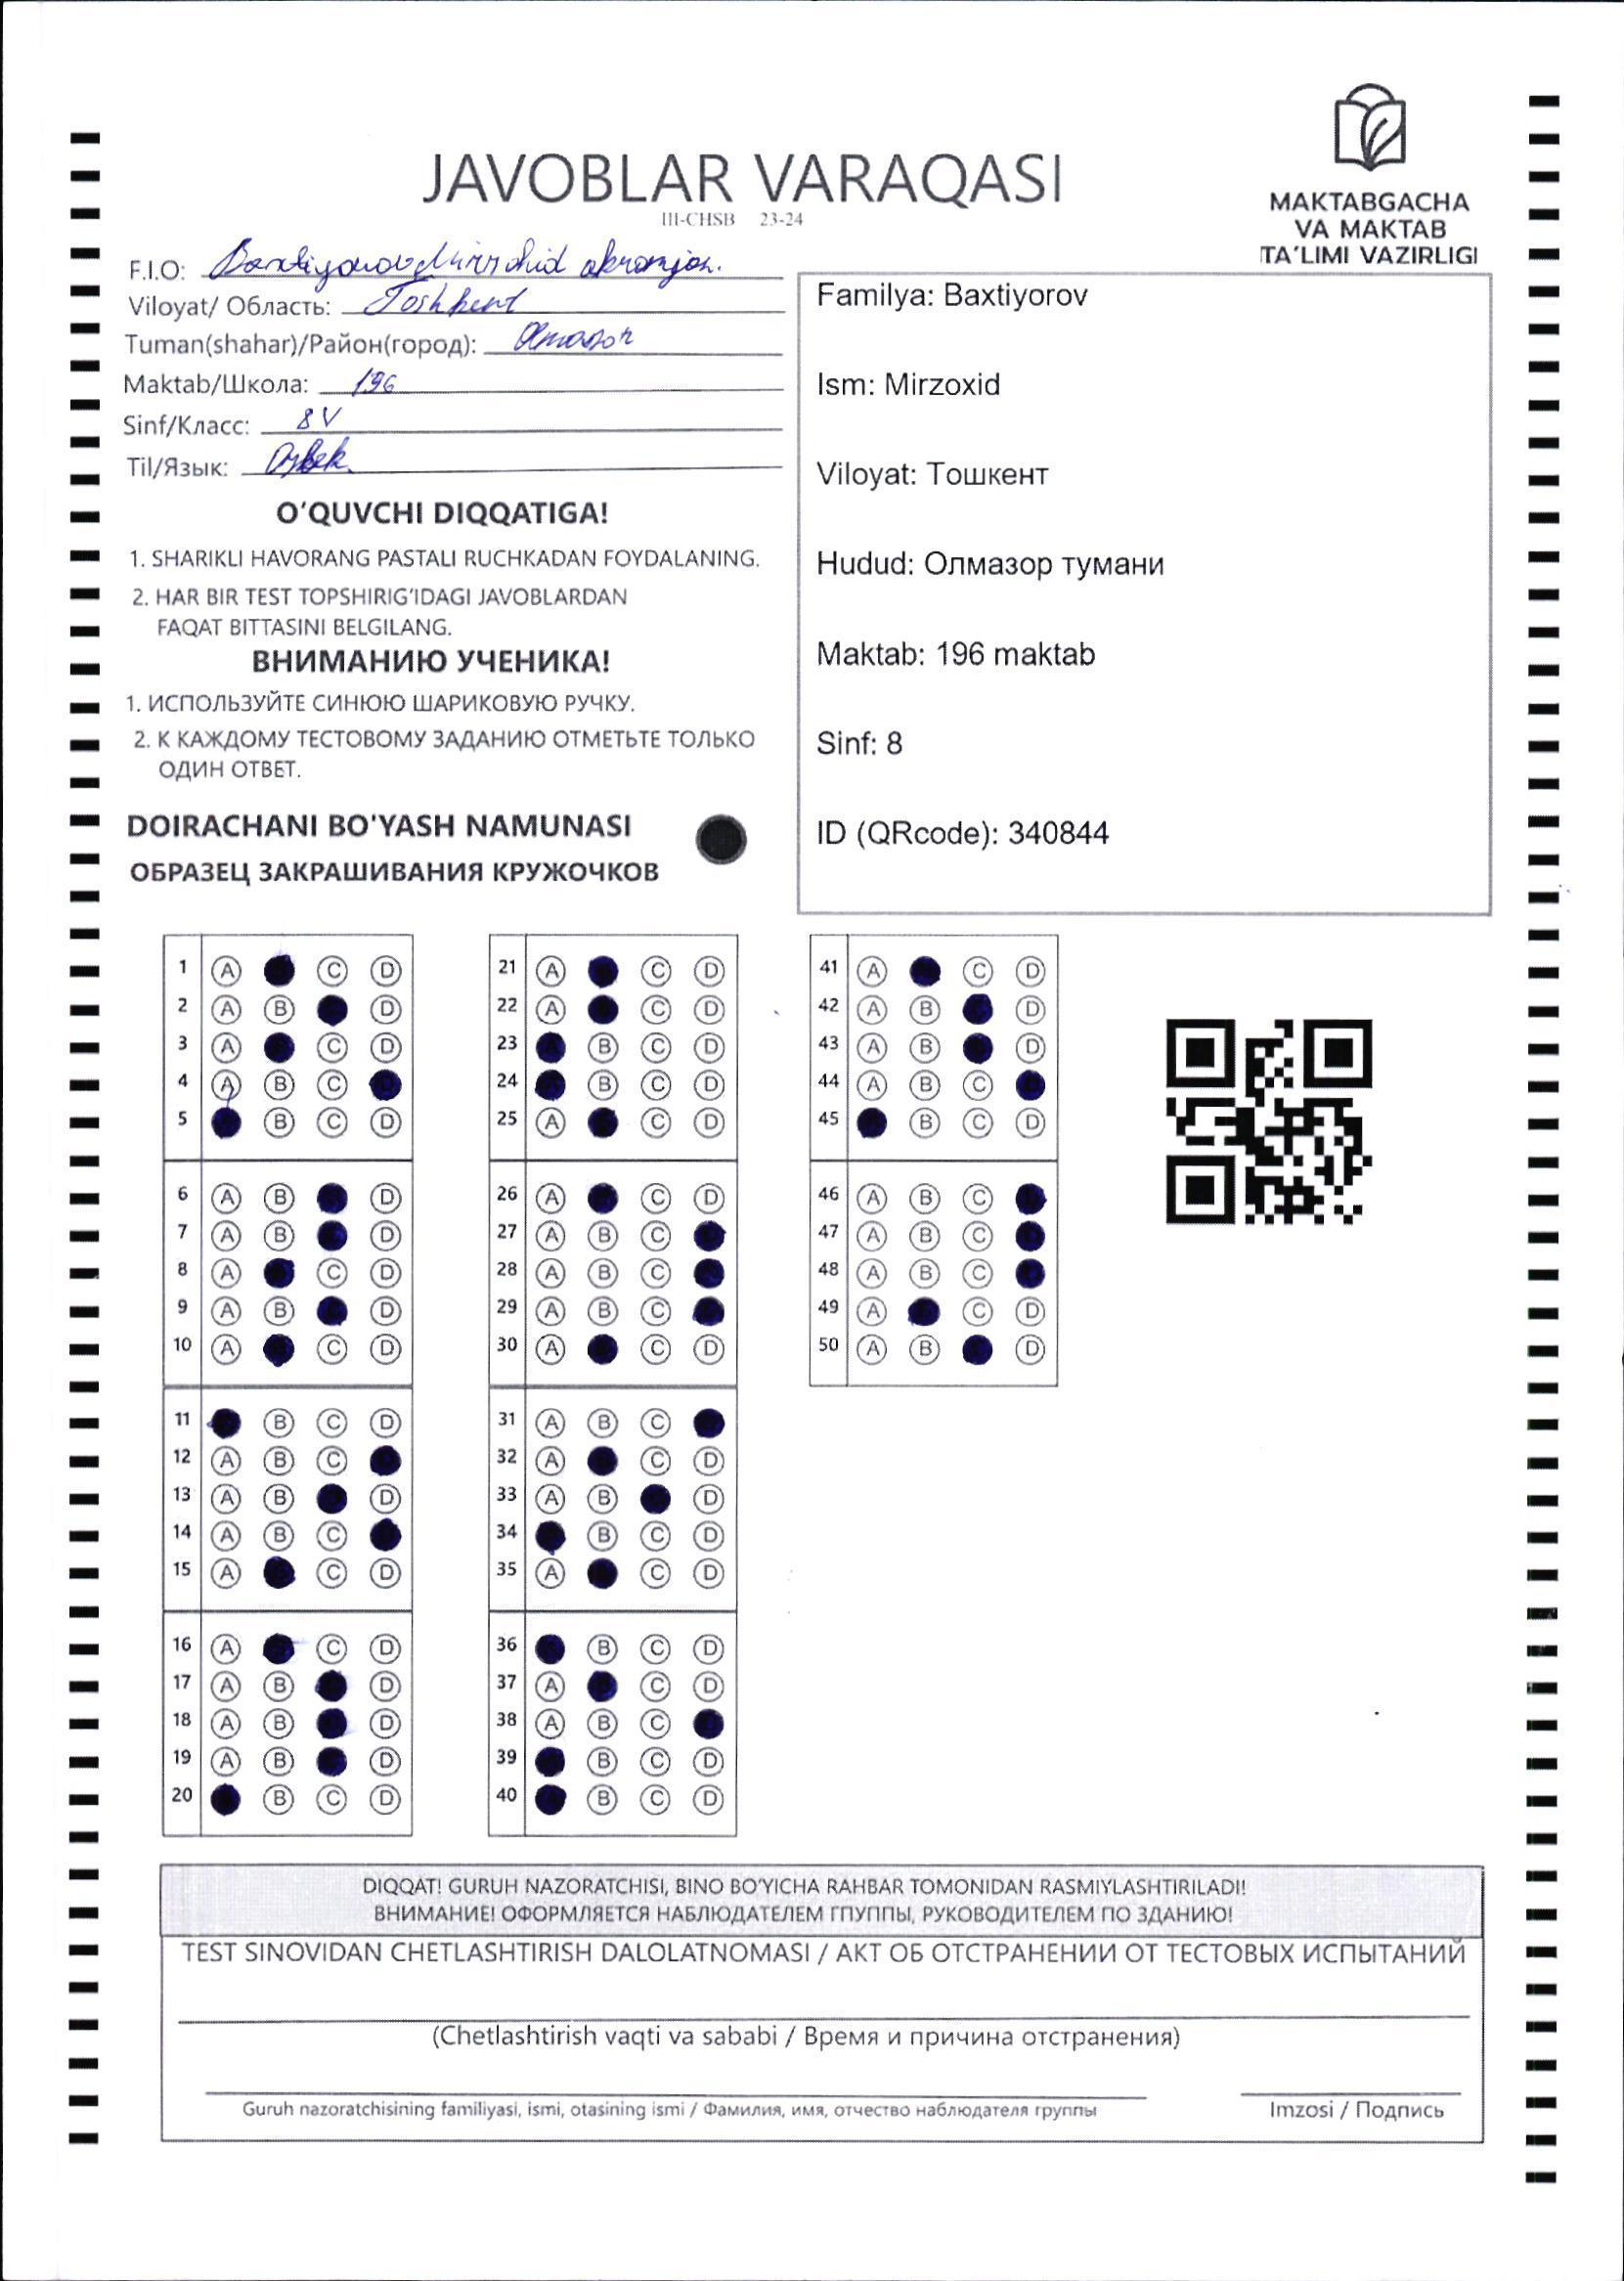 JAVOBLAR VARAQASI
III-CHSB 23-24
MAKTABGACHA
VA MAKTAB
TA'LIMI VAZIRLIGI
F.I.O: Baxtiyorov Mirzohid akromjon.
Viloyat/ Область: Toshkent
Tuman(shahar)/Район(город): Olmazor
Maktab/Школа: 196
Sinf/Класс: 8 V
Til/Язык: Ozbek
O'QUVCHI DIQQATIGA!
1. SHARIKLI HAVORANG PASTALI RUCHKADAN FOYDALANING.
2. HAR BIR TEST TOPSHIRIG'IDAGI JAVOBLARDAN
FAQAT BITTASINI BELGILANG.
ВНИМАНИЮ УЧЕНИКА!
1. ИСПОЛЬЗУЙТЕ СИНЮЮ ШАРИКОВУЮ РУЧКУ.
2. К КАЖДОМУ ТЕСТОВОМУ ЗАДАНИЮ ОТМЕТЬТЕ ТОЛЬКО
ОДИН ОТВЕТ.
DOIRACHANI BO'YASH NAMUNASI
ОБРАЗЕЦ ЗАКРАШИВАНИЯ КРУЖОЧКОВ
Familya: Baxtiyorov
Ism: Mirzoxid
Viloyat: Тошкент
Hudud: Олмазор тумани
Maktab: 196 maktab
Sinf: 8
ID (QRcode): 340844
1 A C D
2 A B D
3 A C D
4 A B C
5 B C D
6 A B D
7 A B D
8 A C D
9 A B D
10 A C D
11 B C D
12 A B C
13 A B D
14 A B C
15 A C D
16 A C D
17 A B D
18 A B D
19 A B D
20 B C D
21 A C D
22 A C D
23 B C D
24 B C D
25 A C D
26 A C D
27 A B C
28 A B C
29 A B C
30 A C D
31 A B C
32 A C D
33 A B D
34 B C D
35 A C D
36 B C D
37 A C D
38 A B C
39 B C D
40 B C D
41 A C D
42 A B D
43 A B D
44 A B C
45 B C D
46 A B C
47 A B C
48 A B C
49 A C D
50 A B D
DIQQAT! GURUH NAZORATCHISI, BINO BO'YICHA RAHBAR TOMONIDAN RASMIYLASHTIRILADI!
ВНИМАНИЕ! ОФОРМЛЯЕТСЯ НАБЛЮДАТЕЛЕМ ГПУППЫ, РУКОВОДИТЕЛЕМ ПО ЗДАНИЮ!
TEST SINOVIDAN CHETLASHTIRISH DALOLATNOMASI / АКТ ОБ ОТСТРАНЕНИИ ОТ ТЕСТОВЫХ ИСПЫТАНИЙ
(Chetlashtirish vaqti va sababi / Время и причина отстранения)
Guruh nazoratchisining familiyasi, ismi, otasining ismi / Фамилия, имя, отчество наблюдателя группы
Imzosi / Подпись